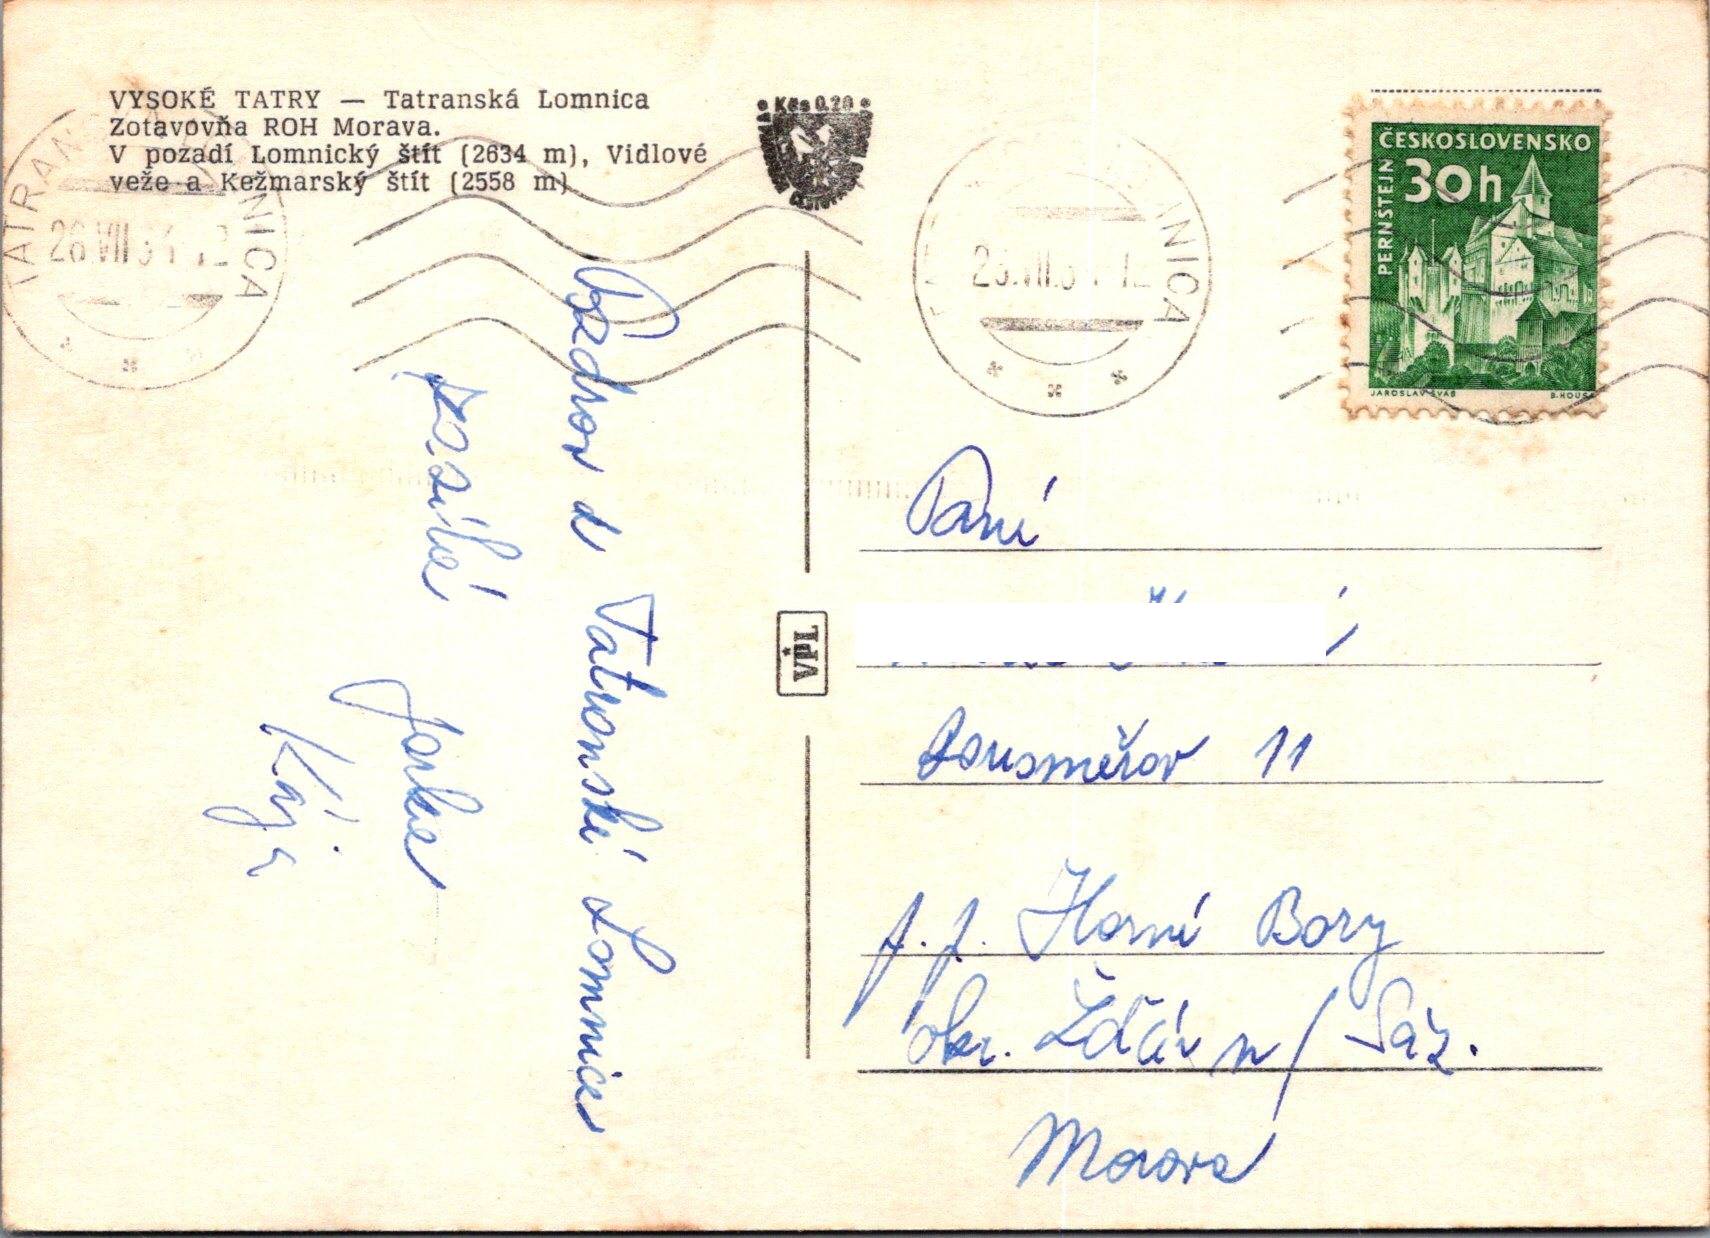 VYSOKÉ TATRY — Tatranská Lomnica
Zotavovňa ROH Morava.
V pozadí Lomnický štít (2634 m), Vidlové
veže a Kežmarský štít (2558 m)
Kčs 0.20
TATRANSKÁ LOMNICA
26.VII.
ČESKOSLOVENSKO
30h
PERNŠTEJN
JAROSLAV ŠVÁB
B. HOUSA
Pozdrav z Tatranské Lomnice
zasílá
Jarka
Kája
VPL
Paní
11
p.p. Horní Bory
okr. Žďár n/Sáz.
Morava